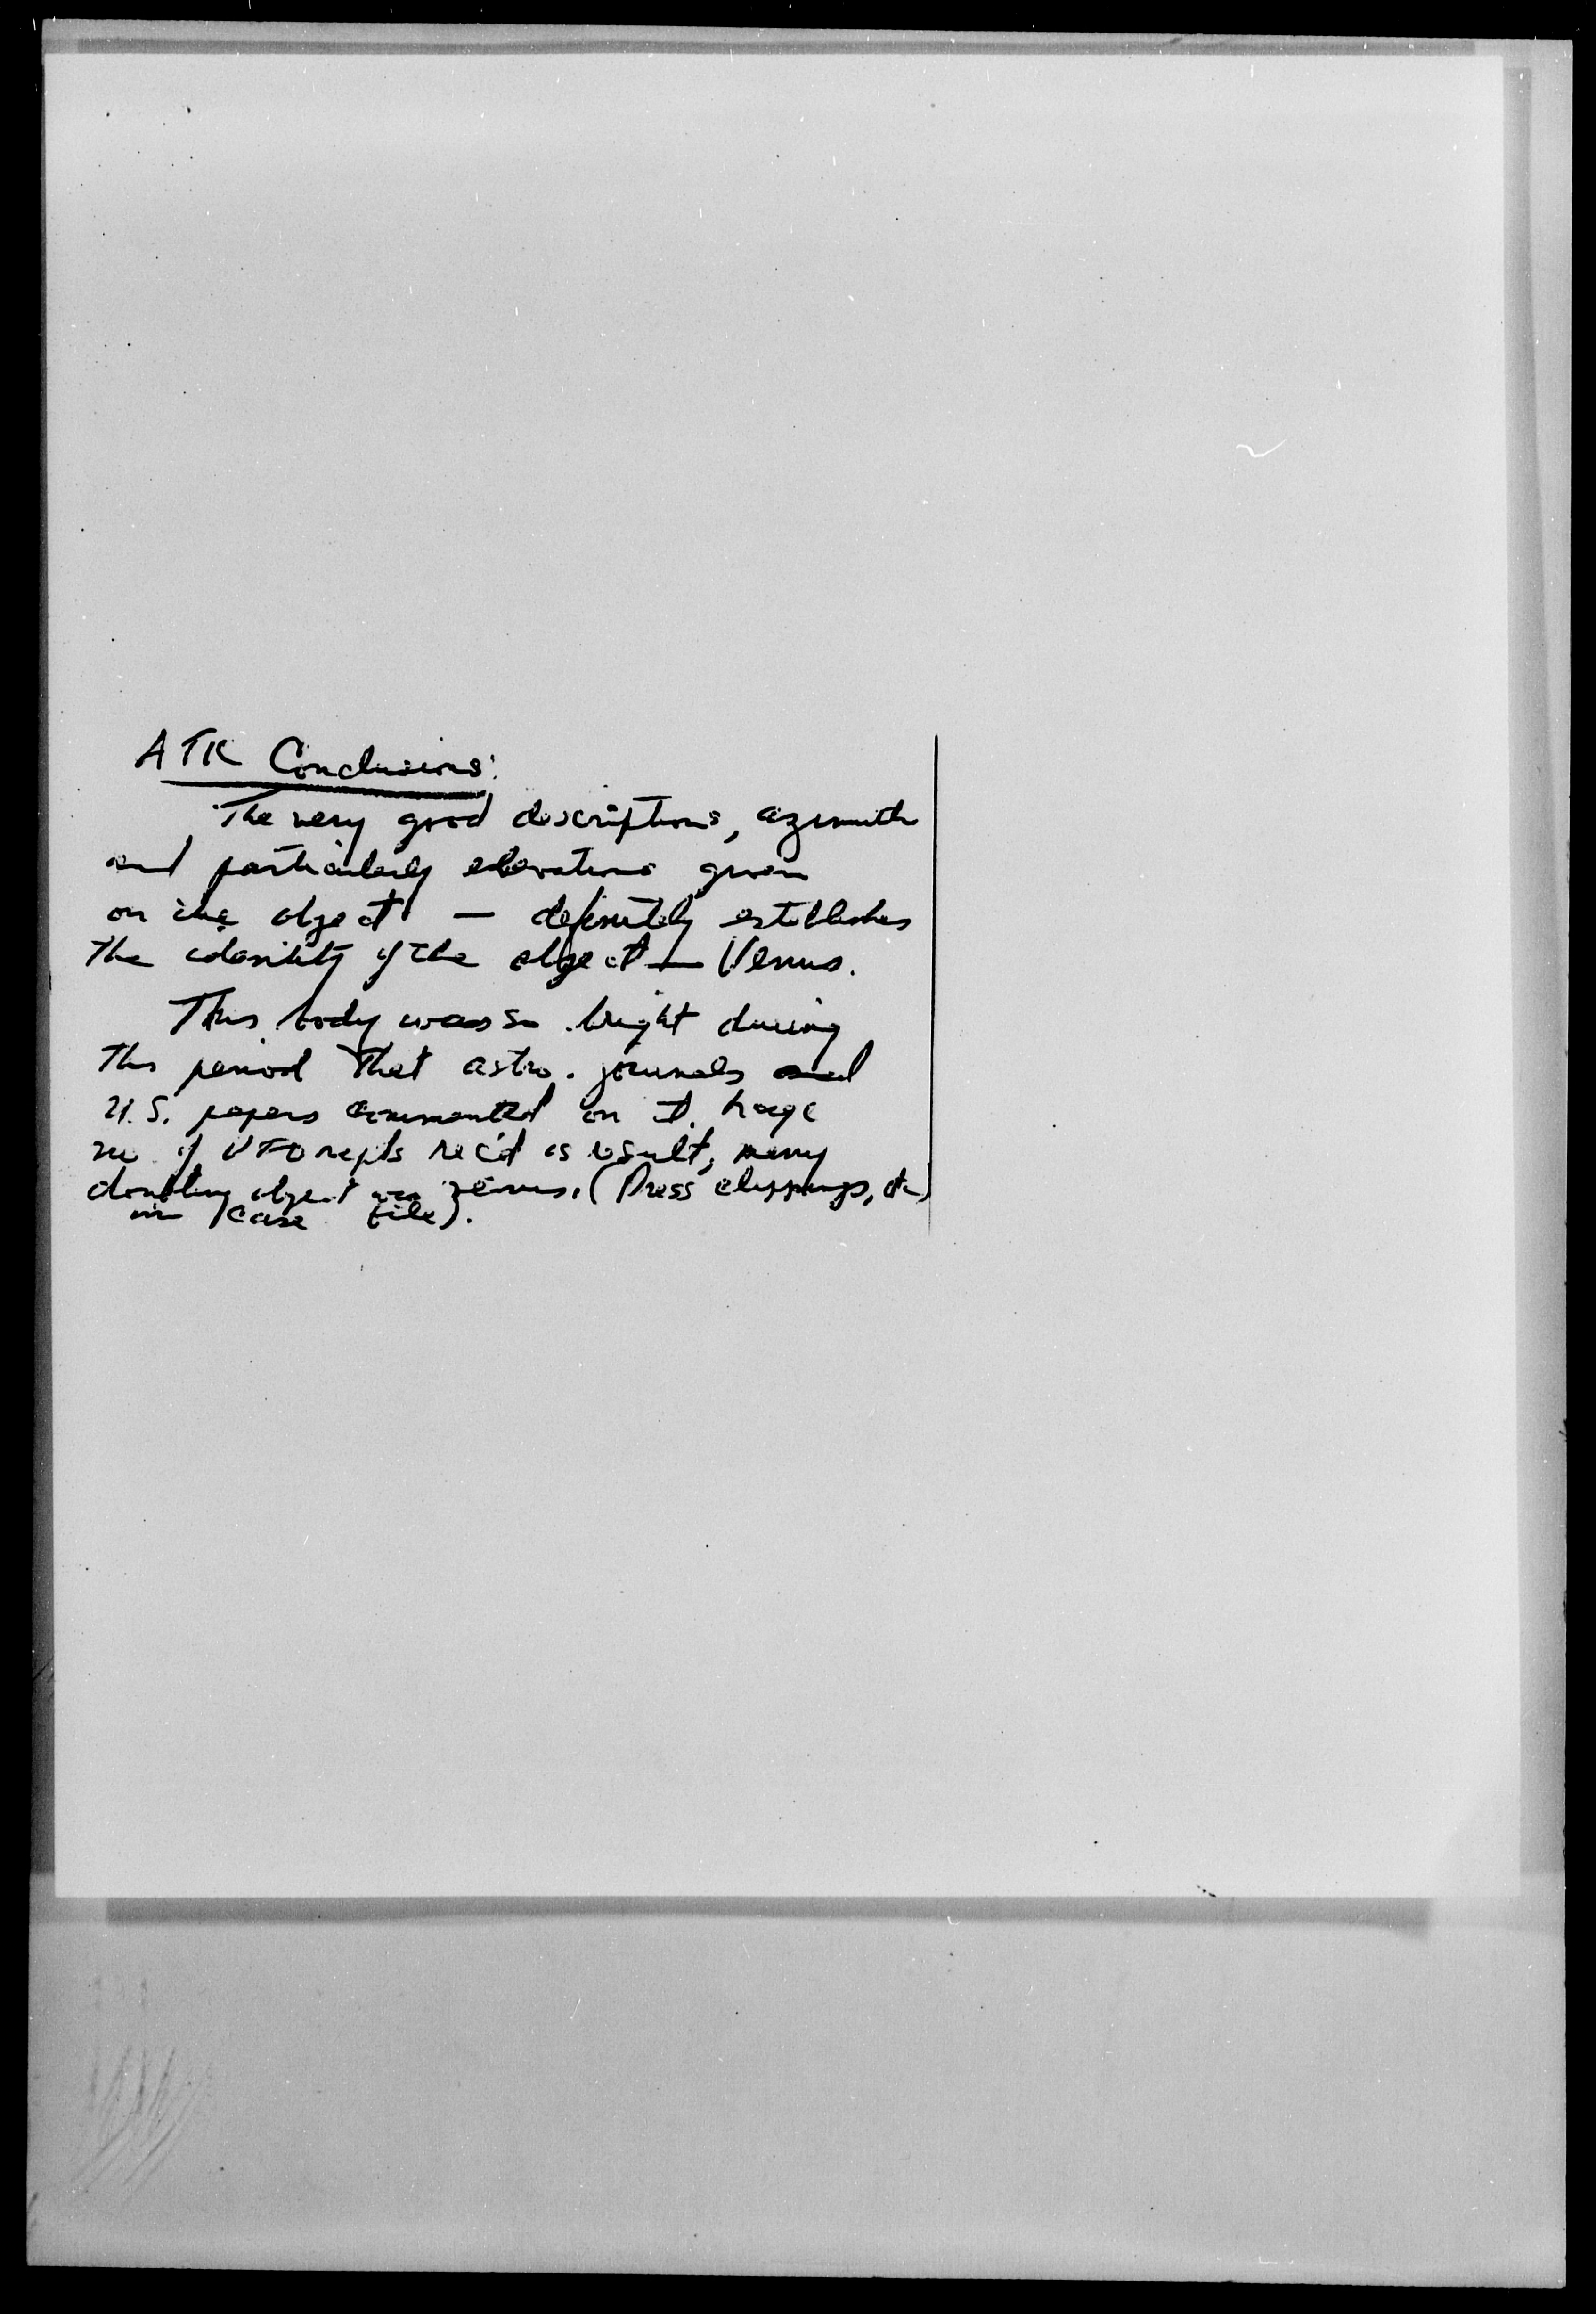 ATR Conclusions:
The very good descriptions, azimuth
and particularly elevations given
on the object — definitely establishes
the idenitity of the object — Venus.
This body was so bright during
this period that astro. journals and
U.S. papers commented on it. Large
no. of UFO repts rec'd as result, many
doubting object was Venus. (Press clippings, etc
in case file).